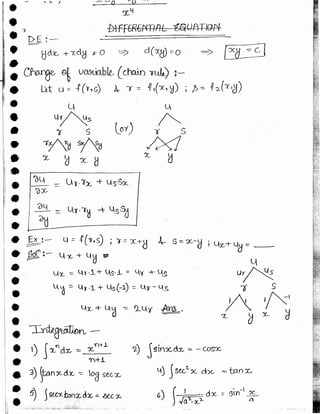 x⁴
DIFFERENTIAL EQUATION
D.E :—
ydx + xdy = 0 ⇒ d(xy) = 0 ⇒ xy = C
Change of variable (chain rule) :—
Let u = f(r,s) & r = f₁(x,y) ; s = f₂(x,y)
u u
ur us
r S (or) r S
rx ry sx sy
x y x y x y
∂u/∂x = ur.rx + us sx
∂u/∂y = ur.ry + us sy
Ex :— u = f(r,s) ; r = x+y & s = x-y ; ux + uy = ____
Sol :— ux + uy =
ux = ur.1 + us.1 = ur + us
uy = ur.1 + us(-1) = ur - us
ux + uy = 2ur Ans.
u
ur us
r S
1 1 1 -1
x y x y
Integration —
1) ∫xⁿdx = xⁿ⁺¹/n+1 2) ∫sinxdx = -cosx
3) ∫tanxdx = log secx 4) ∫sec²x dx = tanx
5) ∫secx tanx dx = secx 6) ∫1/√a²-x² dx = sin⁻¹ x/a